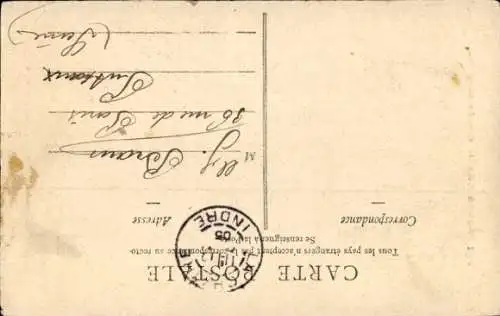 CARTE POSTALE
Tous les pays étrangers n'acceptent pas la correspondance au recto-
Se renseigner à la Poste
Correspondance
Adresse
INDRE
05
M J. Braun
36 rue de Paris
Puteaux
(Seine)